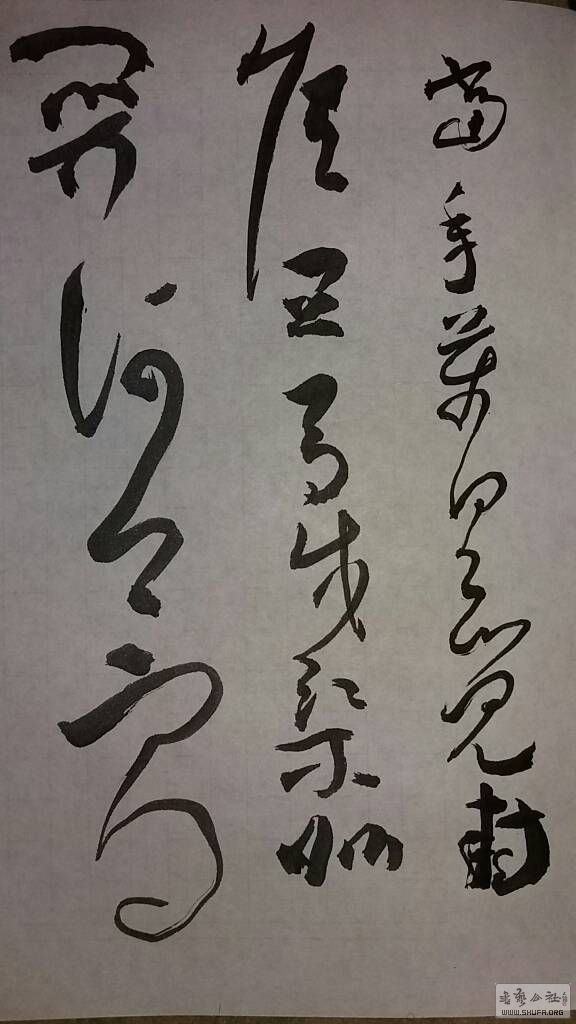 當年萬里覓封
侯匹馬戍梁州
關河
WWW.SHUFA.ORG